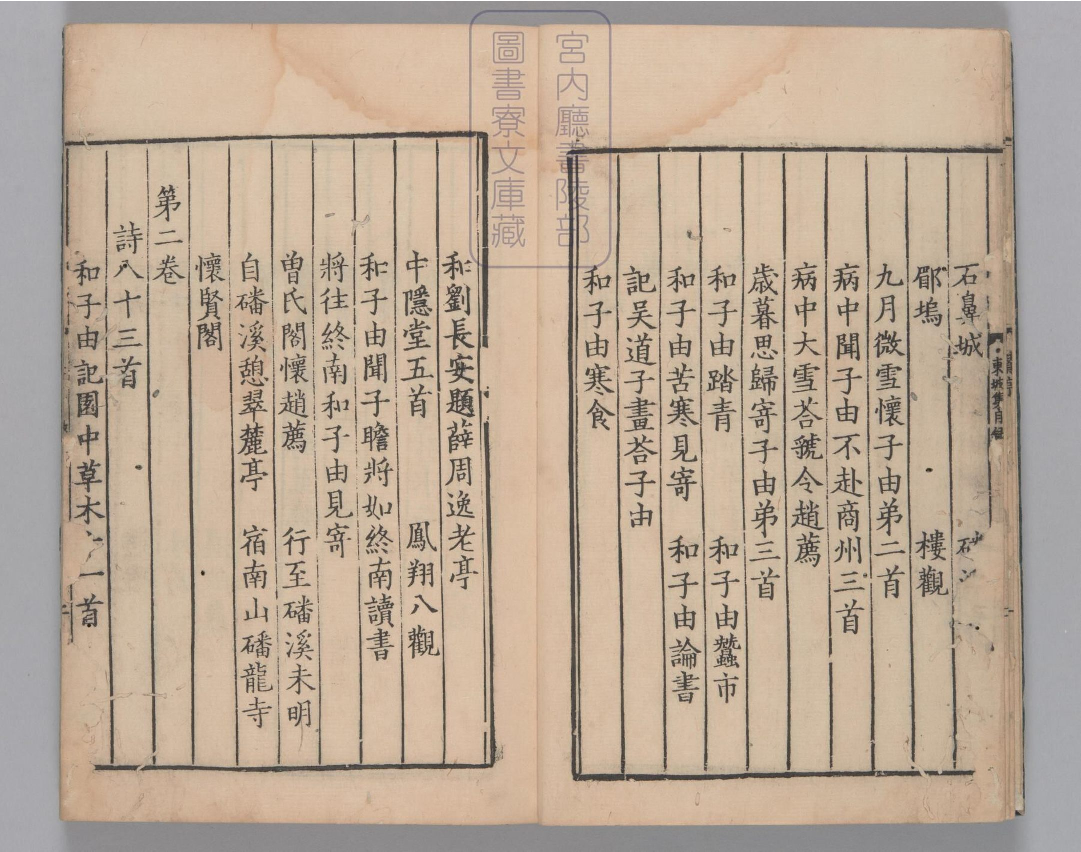 石鼻城
郿塢 樓觀
九月微雪懷子由弟二首
病中聞子由不赴商州三首
病中大雪荅虢令趙薦
歳暮思歸寄子由弟三首
和子由踏青 和子由蠶市
和子由苦寒見寄 和子由論書
記吴道子畫荅子由
和子由寒食
和劉長安題薛周逸老亭
中隱堂五首 鳳翔八觀
和子由聞子瞻將如終南讀書
將往終南和子由見寄
曽氏閣懷趙薦 行至磻溪未明
自磻溪憩翠麓亭 宿南山磻龍寺
懷賢閣
第二卷
詩八十三首
和子由記園中草木十一首
東坡集目錄
宮内廳書陵部
圖書寮文庫藏